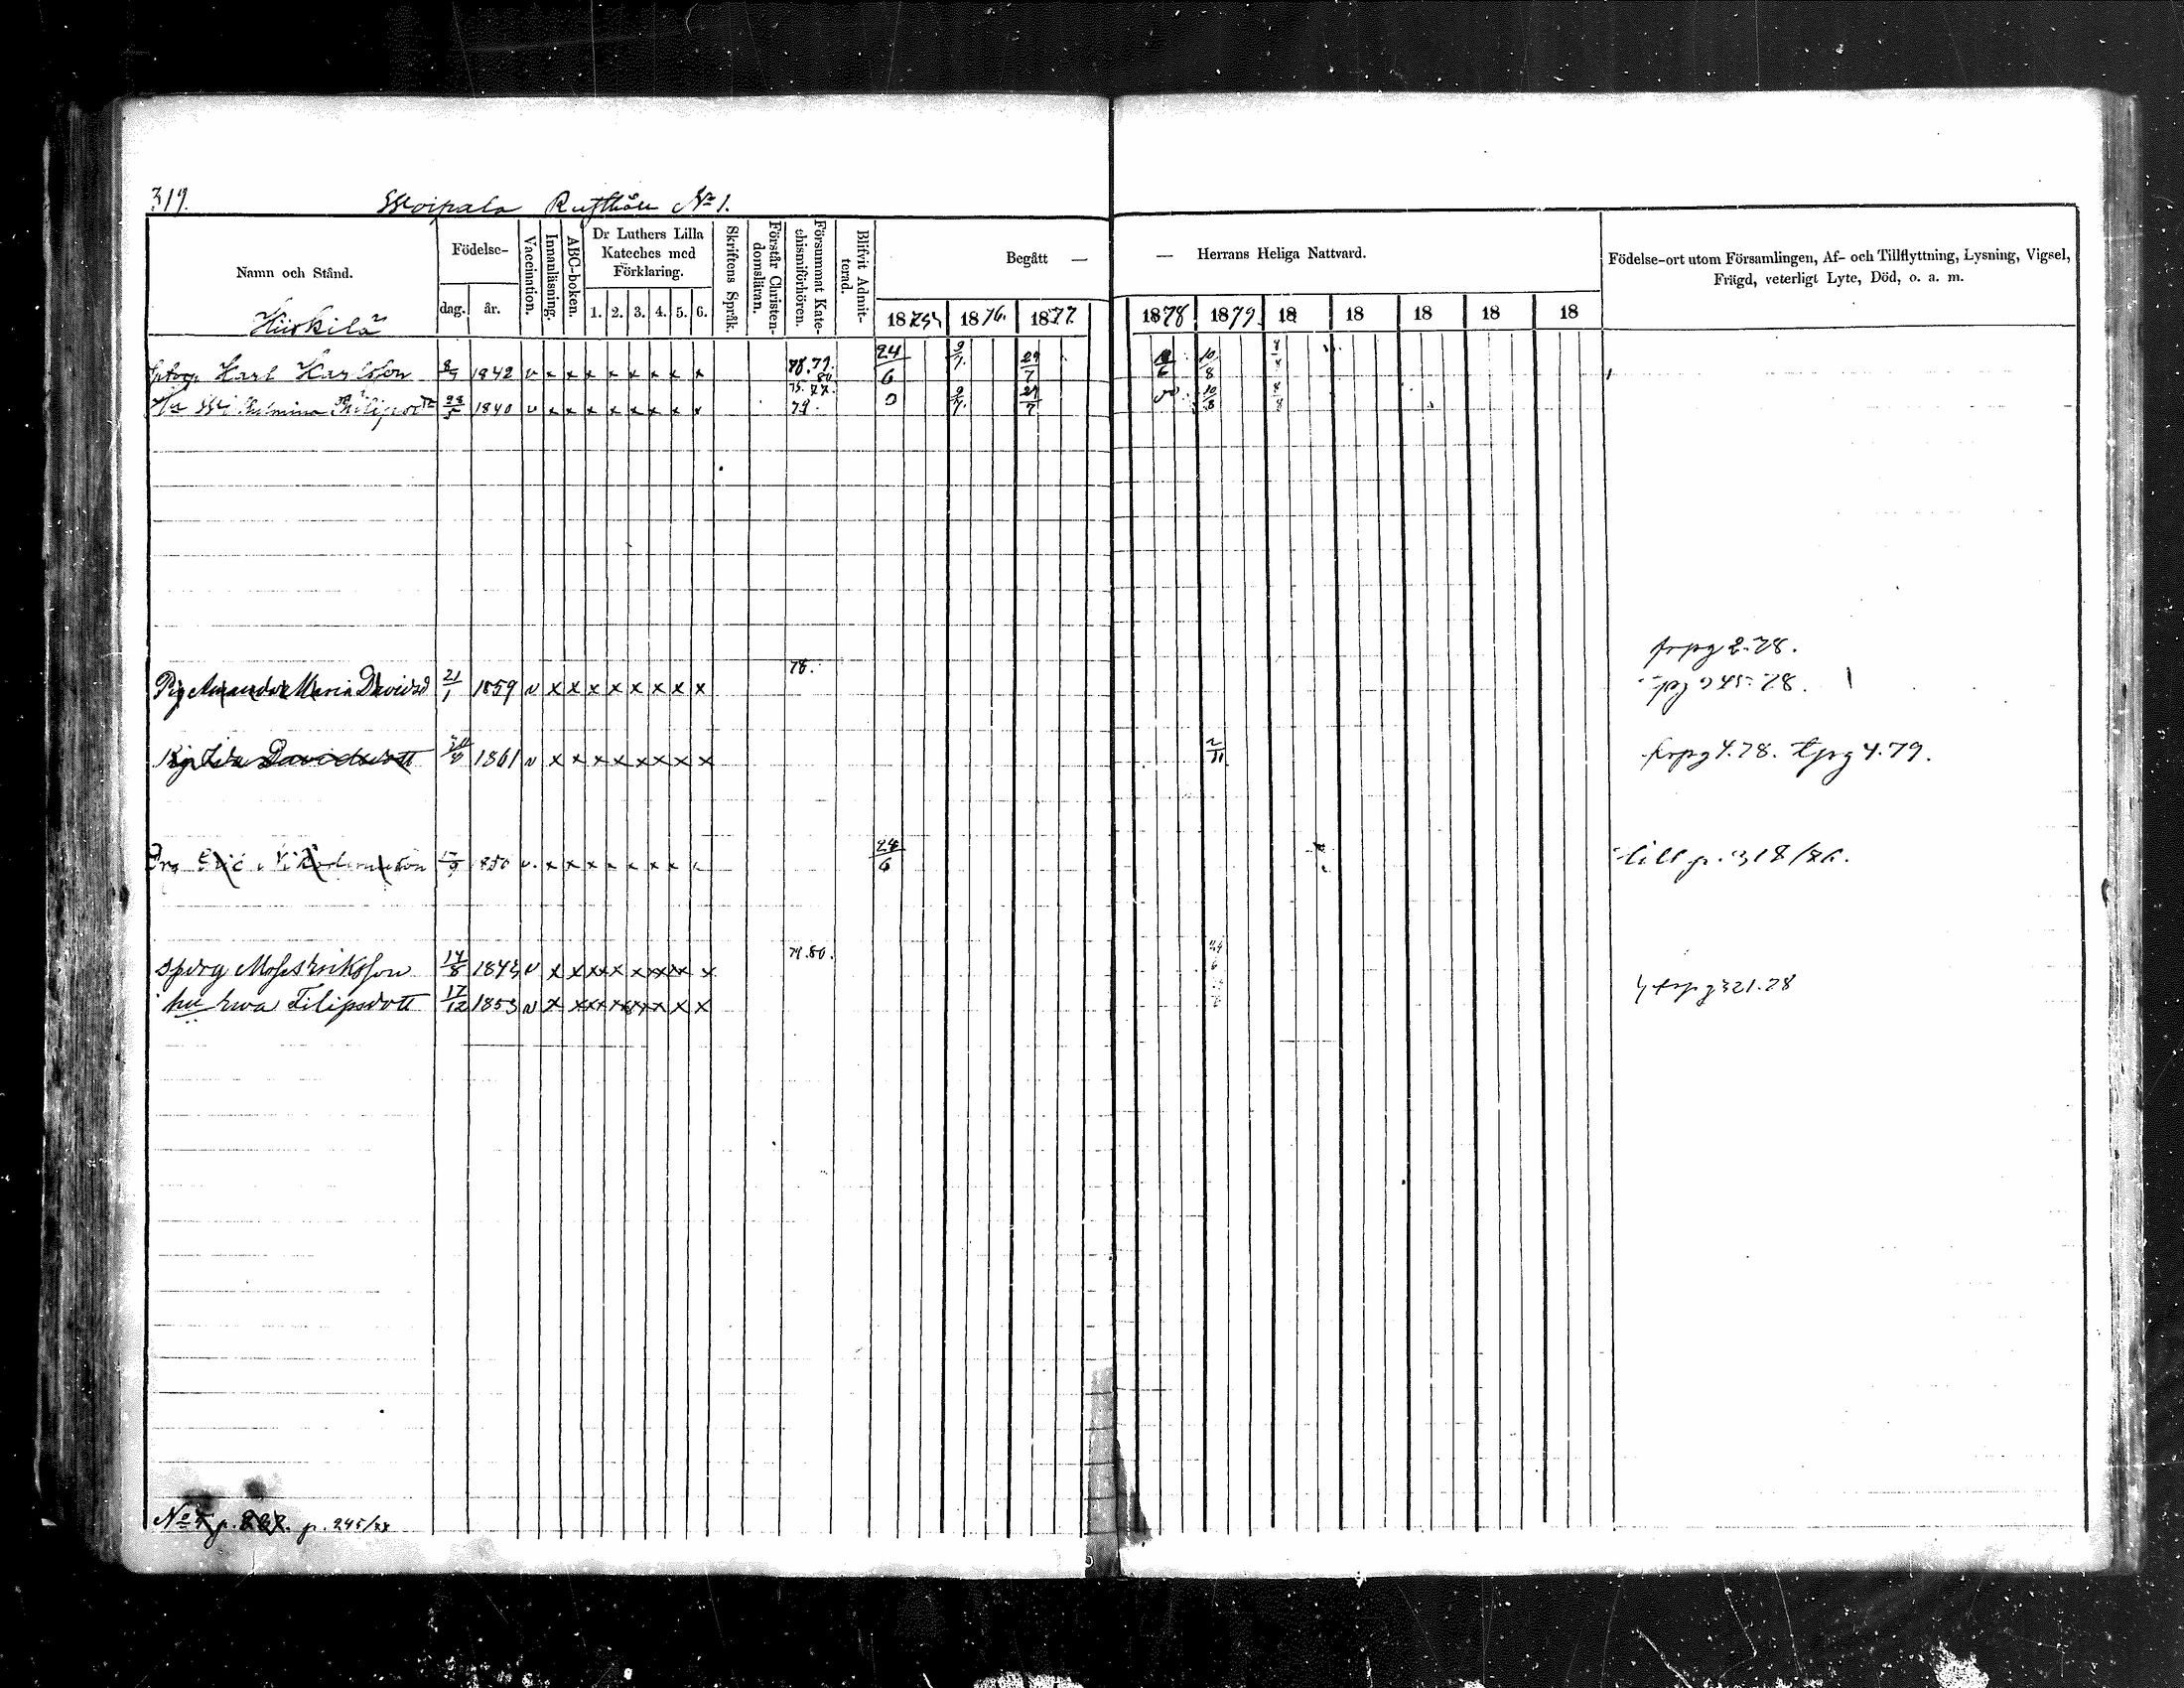 319. Woipala Rusthåll No 1.
Namn och Stånd.
Hiirkilä
Födelse-
dag. år.
Vaccination.
Innanläsning.
ABC-boken.
Dr Luthers Lilla
Kateches med
Förklaring.
1. 2. 3. 4. 5. 6.
Skriftens Språk.
Förstår Christen-
domsläran.
Försummat Kate-
chismiförhören.
Blifvit Admit-
terad.
Begått —
1875. 1876. 1877.
— Herrans Heliga Nattvard.
1878 1879. 18 18 18 18 18
Födelse-ort utom Församlingen, Af- och Tillflyttning, Lysning, Vigsel,
Frägd, veterligt Lyte, Död, o. a. m.
Karl Karlsson 1842 v x x x x x x x x 78. 79. 80. 24/6 9/7. 29/7 10/8 8/8
Hu Wilhelmina 28/5 1840 v x x x x x x x x 75. 77. 79. 0 9/7. 29/7 10/8 8/8
frpg 2.78.
Pig Amanda Maria Davidsd 21/1 1859 v x x x x x x x x 78. 345.78.
Pig Davidsdott 1861 v x x x x x x x x 2/11 frpg 4.78. tpg 4.79.
Eric v. x x x x x x x 24/6 till p. 318/86.
spirg Moses Eriksson 14/8 1843 v x x x x x x x x 79.80.
hu Ewa Filipsdott 17/12 1853 v x x x x x x x x frpg 321.78
No p. p. 245/